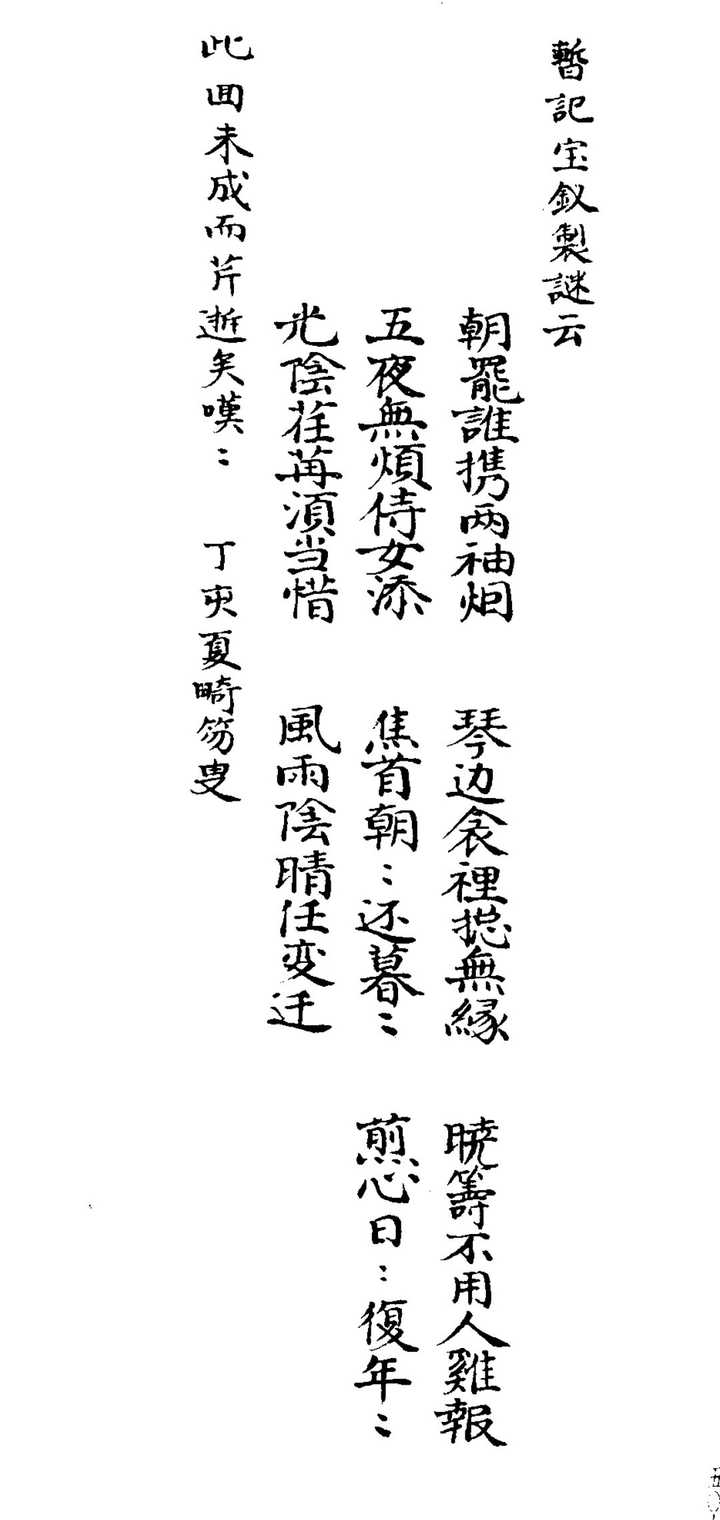 暫記宝釵製謎云
朝罷誰携两袖烟　琴边衾裡揔無縁　暁籌不用人雞報
五夜無煩侍女添　焦首朝〻还暮〻　煎心日〻復年〻
光陰荏苒湏当惜　風雨陰晴任変迁
此回未成而芹逝矣嘆〻　丁亥夏畸笏叟